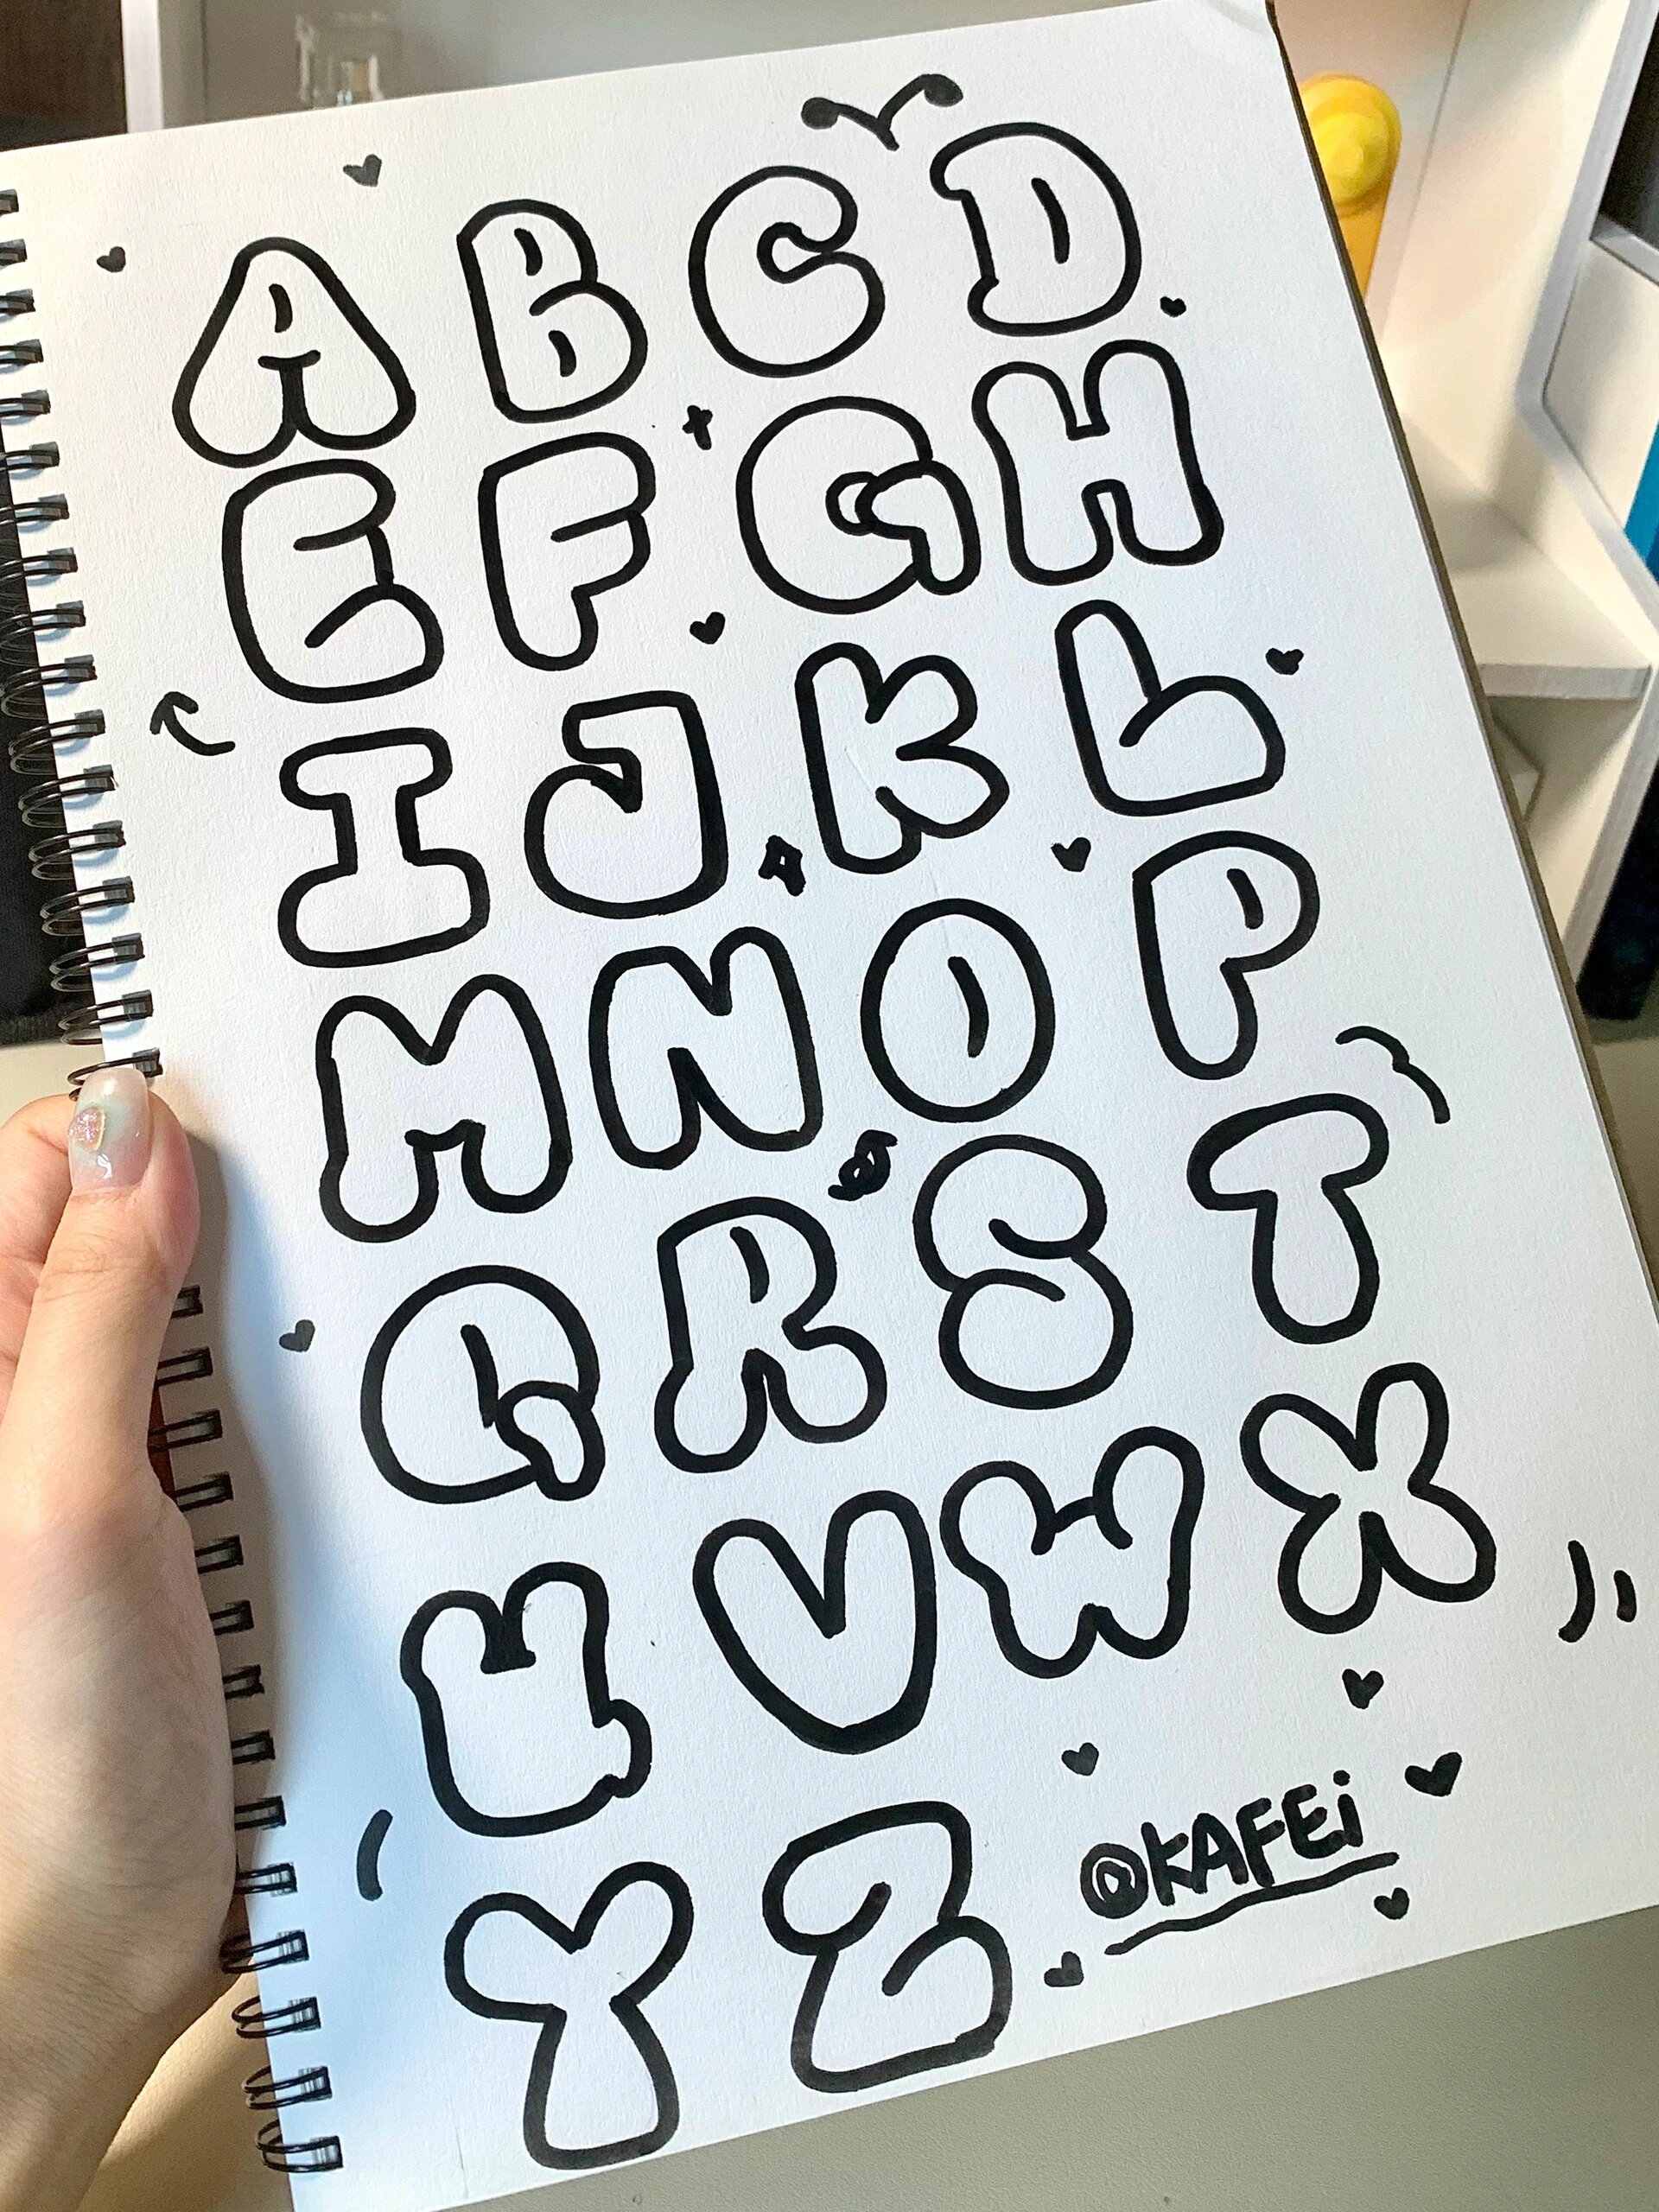 A B C D
E F G H
I J K L
M N O P
Q R S T
U V W X
Y Z
@KAFEi